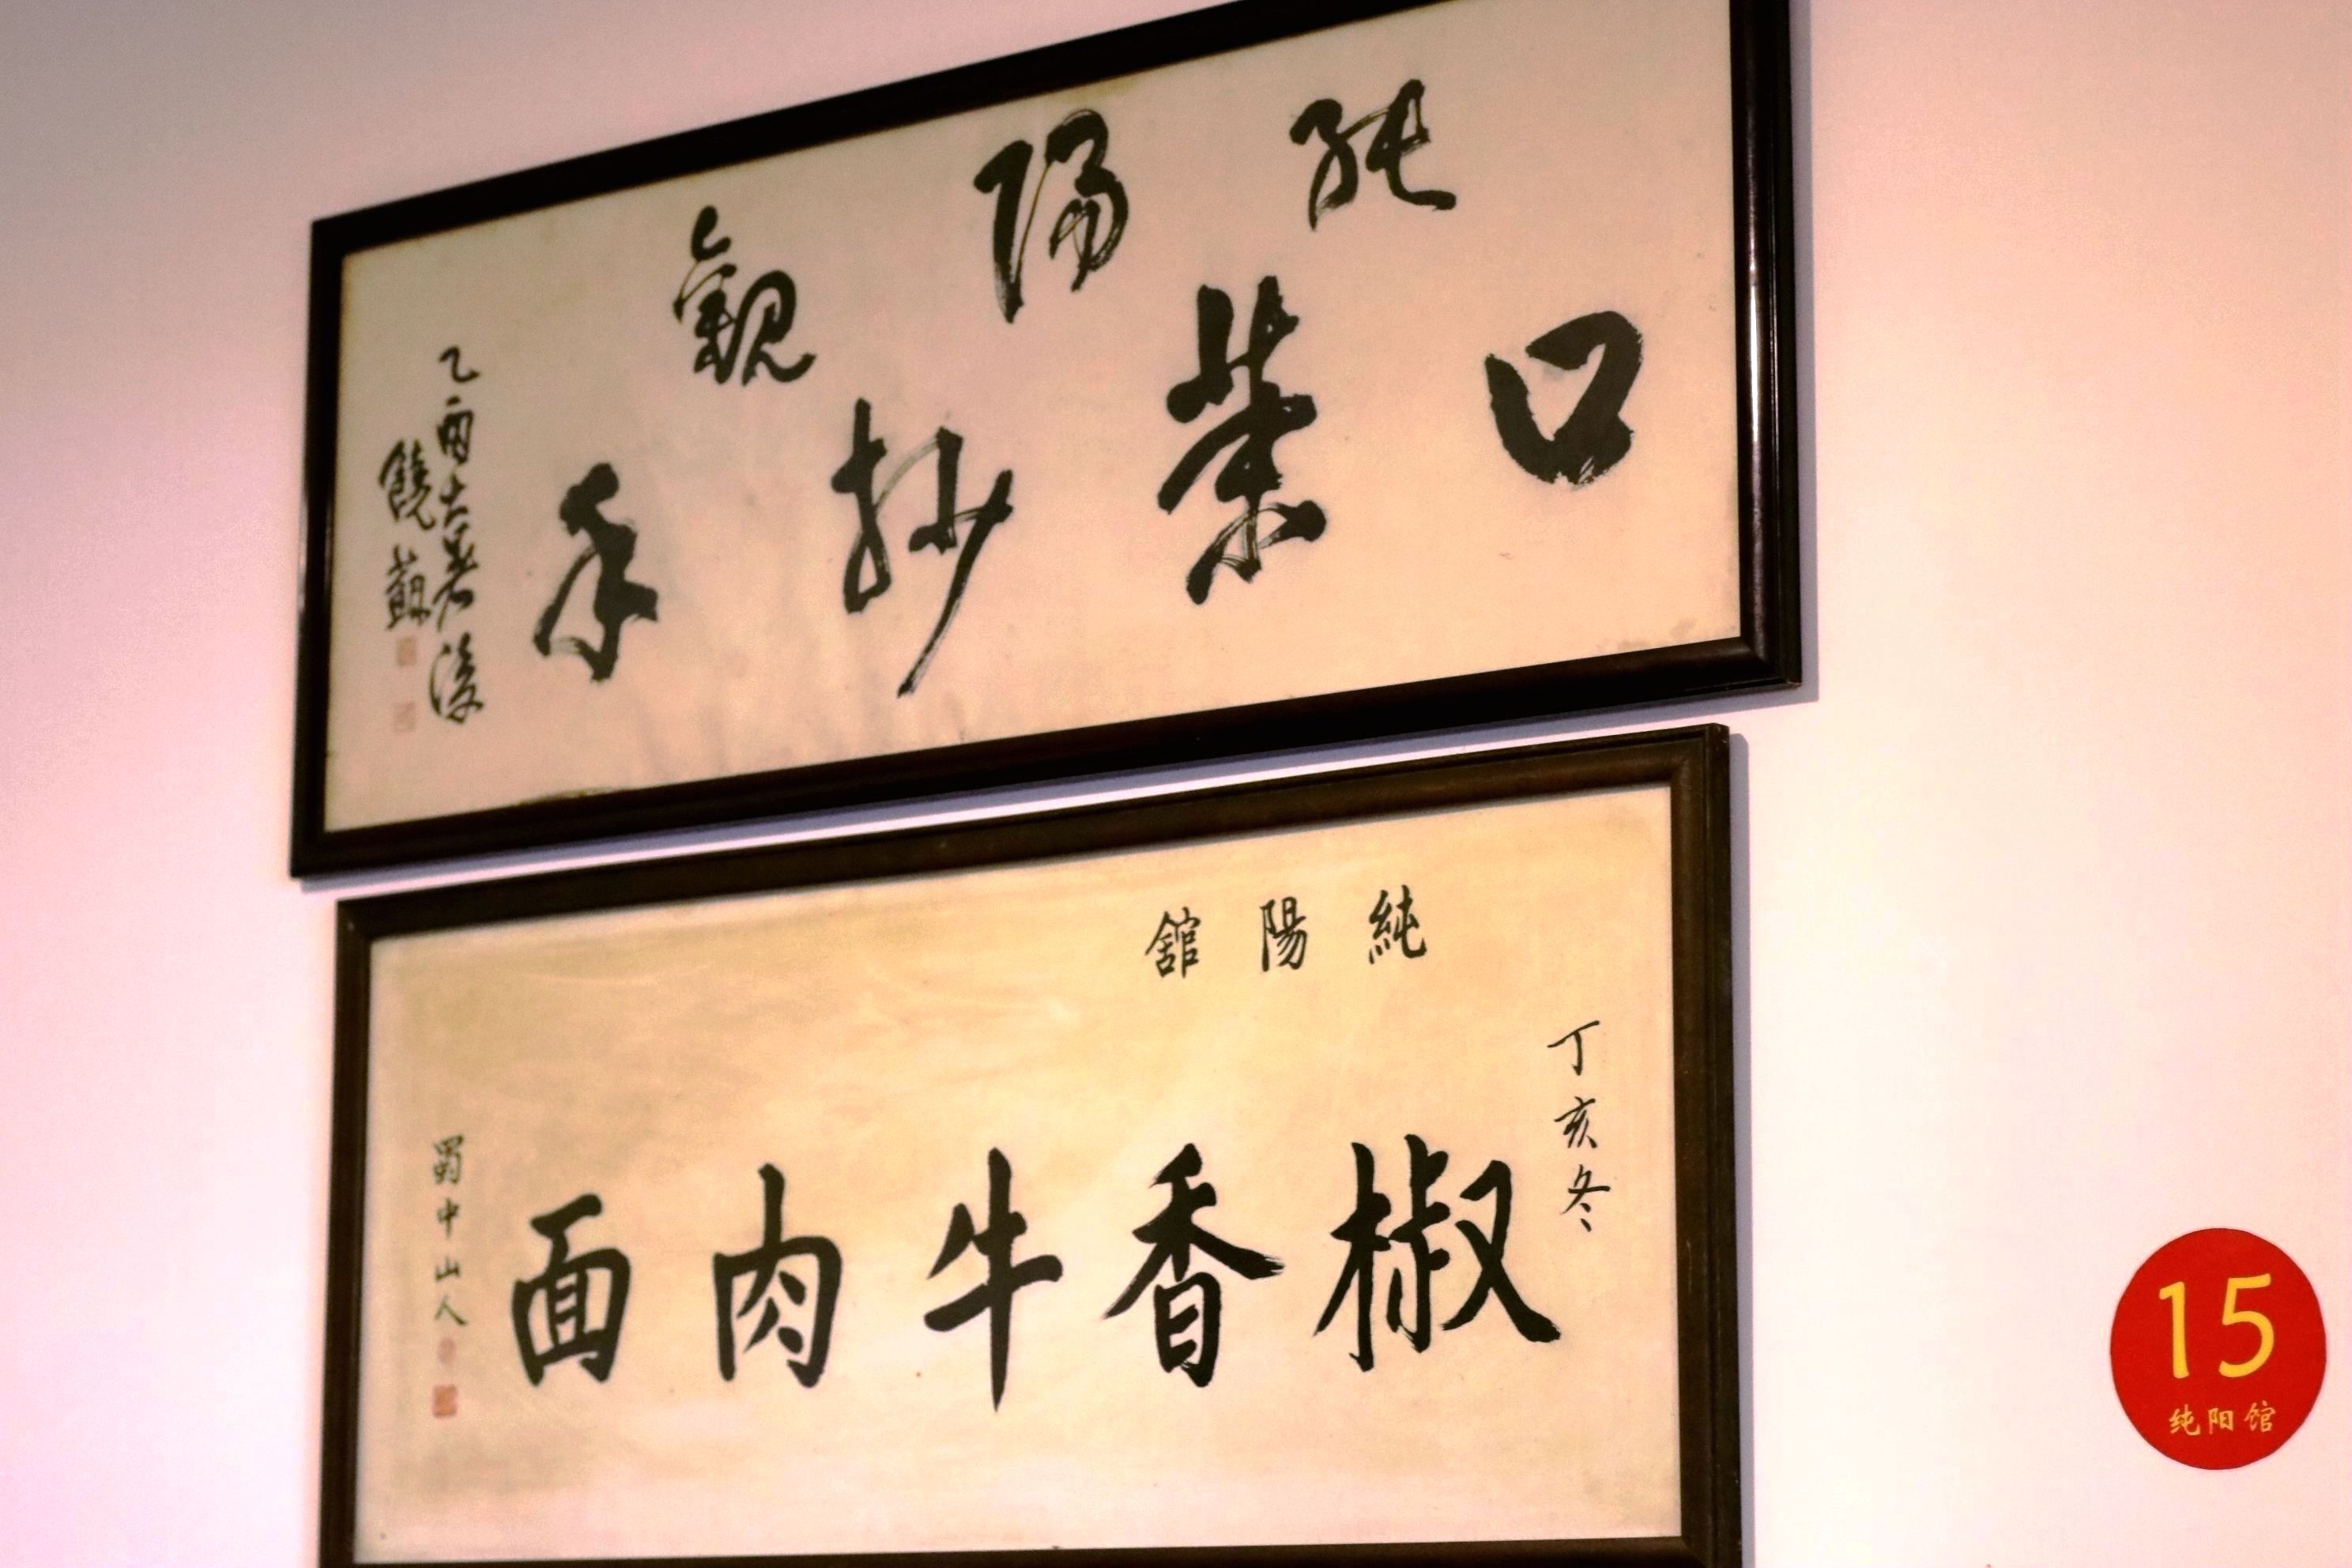 純陽觀
口柴抄手
乙酉大暑後
純陽舘
丁亥冬
椒香牛肉面
蜀中山人
15
纯阳馆